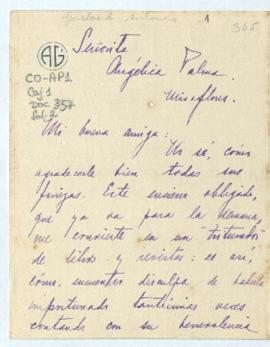 Garland Antonio 1 365
AG
Señorita
Angélica Palma.
Miraflores.
CO-AP1
Caj 1
Doc 357
fol. 2
Mi buena amiga:
No sé, cómo
agradecerle bien todas sus
finezas. Este encierro obligado,
que ya va para la semana,
me convierte en un "triturador"
de libros y revistas: es así,
cómo, encuentro disculpa de haberla
importunado tantísimas veces
contando con su benevolencia